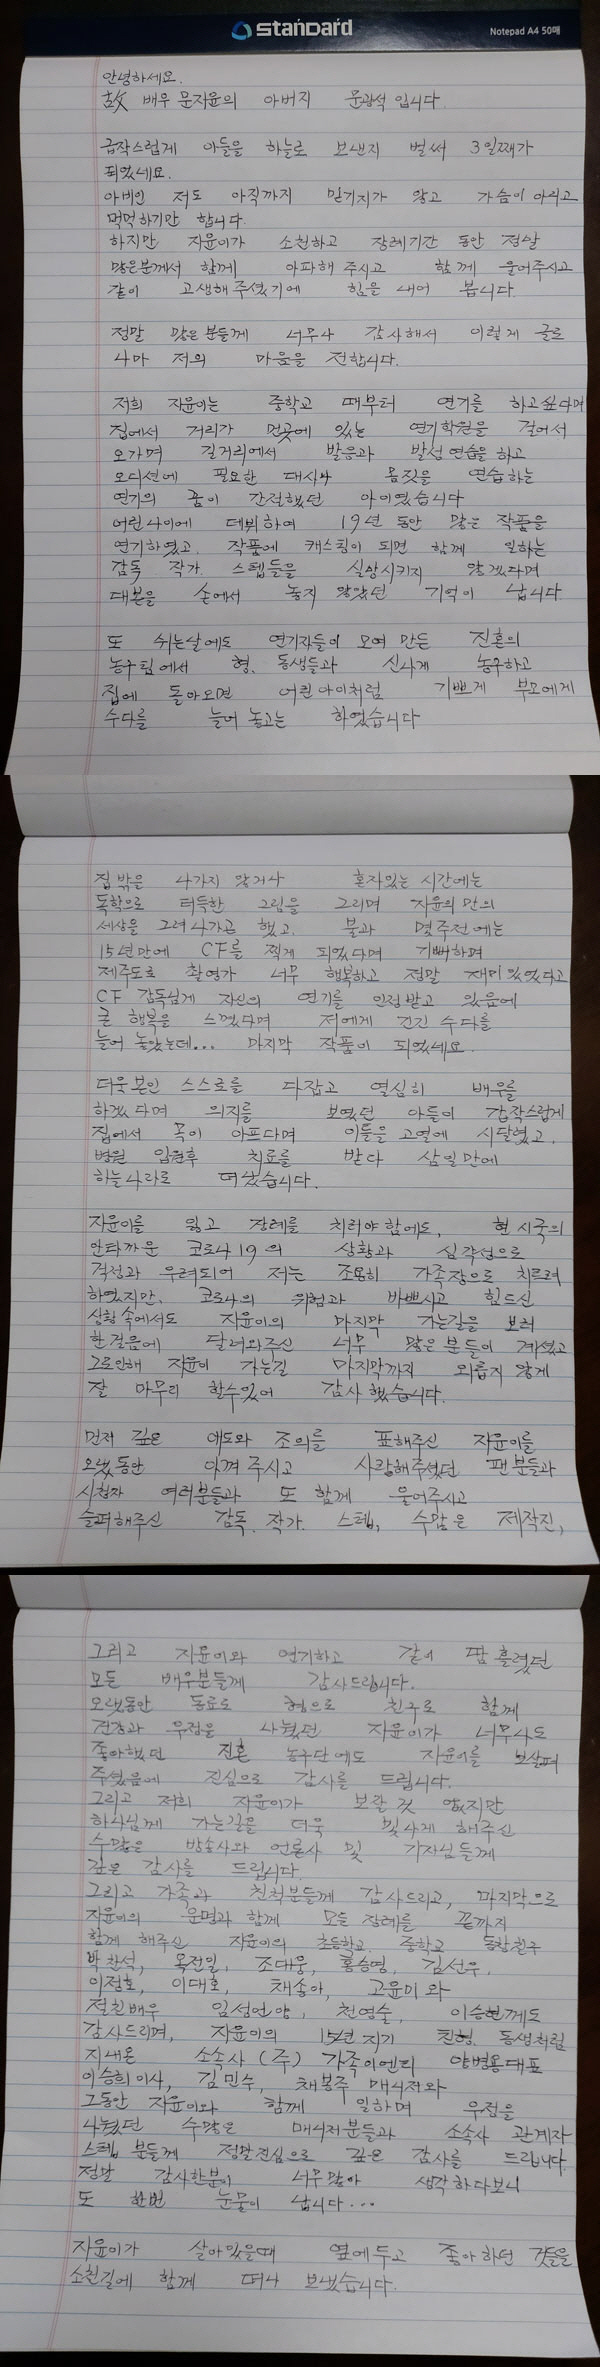 standard
Notepad A4 50매
안녕하세요.
故 배우 문지윤의 아버지 문광석 입니다.
급작스럽게 아들을 하늘로 보낸지 벌써 3일째가
되었네요.
아비인 저도 아직까지 믿기지가 않고 가슴이 아리고
먹먹하기만 합니다.
하지만 지윤이가 소천하고 장례기간 동안 정말
많은분께서 함께 아파해 주시고 함께 울어주시고
같이 고생해 주셨기에 힘을 내어 봅니다.
정말 많은 분들께 너무나 감사해서 이렇게 글로
나마 저의 마음을 전합니다.
저희 지윤이는 중학교 때부터 연기를 하고싶다며
집에서 거리가 먼곳에 있는 연기학원을 걸어서
오가며 길거리에서 발음과 발성연습을 하고
오디션에 필요한 대사나 몸짓을 연습하는
연기의 꿈이 간절했던 아이였습니다
어린나이에 데뷔하여 19년 동안 많은 작품을
연기하였고. 작품에 캐스팅이 되면 함께 일하는
감독 작가 스텝들을 실망시키지 않겠다며
대본을 손에서 놓지 않았던 기억이 납니다.
또 쉬는날에도 연기자들이 모여 만든 진혼의
농구팀에서 형, 동생들과 신나게 농구하고
집에 돌아오면 어린아이처럼 기쁘게 부모에게
수다를 늘어 놓고는 하였습니다
집 밖을 나가지 않거나 혼자있는 시간에는
독학으로 터득한 그림을 그리며 지윤의 만의
세상을 그려나가곤 했고. 불과 몇주전에는
15년만에 CF를 찍게 되었다며 기뻐하며
제주도로 촬영가 너무 행복하고 정말 재미있었다고
CF 감독님께 자신의 연기를 인정받고 있음에
큰 행복을 느꼈다며 저에게 긴긴 수다를
늘어 놓았는데... 마지막 작품이 되었네요.
더욱 본인 스스로를 다잡고 열심히 배우를
하겠다며 의지를 보였던 아들이 갑작스럽게
집에서 목이 아프다며 이틀을 고열에 시달렸고,
병원 입원후 치료를 받다 삼일만에
하늘나라로 떠났습니다.
지윤이를 잃고 장례를 치러야함에도, 현 시국의
안타까운 코로나19의 상황과 심각성으로
걱정과 우려되어 저는 조용히 가족장으로 치르려
하였지만, 코로나의 위험과 바쁘시고 힘드신
상황 속에서도 지윤이의 마지막 가는길을 보러
한걸음에 달려와주신 너무 많은 분들이 계셨고
그로인해 지윤이 가는길 마지막까지 외롭지 않게
잘 마무리 할수있어 감사 했습니다.
먼저 깊은 애도와 조의를 표해주신 지윤이를
오랫동안 아껴 주시고 사랑해주셨던 팬 분들과
시청자 여러분들과 또 함께 울어주시고
슬퍼해주신 감독, 작가, 스텝, 수많은 제작진,
그리고 지윤이와 연기하고 같이 땀 흘렸던
모든 배우분들께 감사드립니다.
오랫동안 동료로 형으로 친구로 함께
건강과 우정을 나눴던 지윤이가 너무나도
좋아했던 진혼 농구단에도 지윤이를 보살펴
주셨음에 진심으로 감사를 드립니다.
그리고 저희 지윤이가 보잘 것 없지만
하나님께 가는길을 더욱 빛나게 해주신
수많은 방송사와 언론사 및 기자님들께
깊은 감사를 드립니다.
그리고 가족과 친척분들께 감사드리고, 마지막으로
지윤이의 운명과 함께 모든 장례를 끝까지
함께 해주신 지윤이의 초등학교, 중학교 동창친구
박찬석, 옥전일, 조대웅, 홍승영, 김선우,
이정호, 이대호, 채송아, 고윤미 와
절친배우 임성언양, 천영술, 이승현께도
감사드리며, 지윤이의 15년지기 친형. 동생처럼
지내온 소속사 (주) 가족이엔티 양병용대표
이승희이사, 김민수, 채봉주 매니저와
그동안 지윤이와 함께 일하며 우정을
나눴던 수많은 매니저분들과 소속사 관계자
스텝 분들께 정말진심으로 깊은 감사를 드립니다.
정말 감사한분이 너무많아 생각하다보니
또 한번 눈물이 납니다...
지윤이가 살아있을때 옆에두고 좋아하던 것들을
소천길에 함께 떠나 보냈습니다.